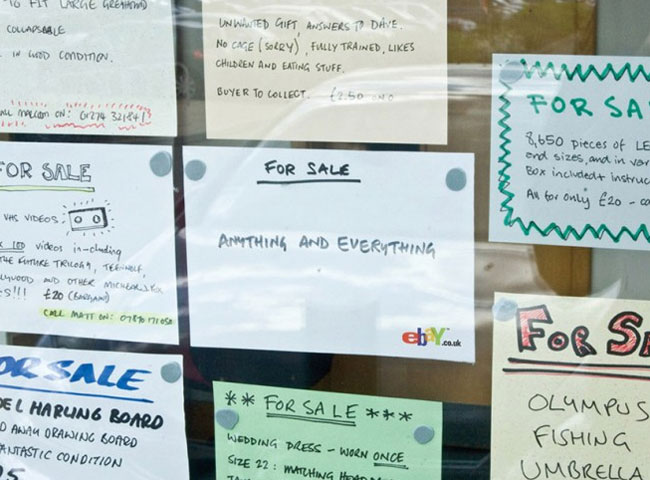 FIT LARGE GREYHOUND
COLLAPSABLE
IN GOOD CONDITION.
CALL MALCOM ON: 01274
UNWANTED GIFT, ANSWERS TO DAVE.
NO CAGE (SORRY), FULLY TRAINED, LIKES
CHILDREN AND EATING STUFF.
BUYER TO COLLECT. £2.50 ONO
FOR SA
8,650 pieces of LE
odd sizes, and in var
Box included + instruc
All for only £20 - co
FOR SALE
VHS VIDEOS:
100 videos in-cluding
THE FUTURE TRILOGY, TEENWOLF,
AND OTHER MICHEAL J FOX
!!! £20 (BARGAIN)
CALL MATT ON:
FOR SALE
ANYTHING AND EVERYTHING
ebay.co.uk
FOR SA
OLYMPUS
FISHING
UMBRELLA
OR SALE
DEL HARLING BOARD
D AWAY DRAWING BOARD
ANTASTIC CONDITION
** FOR SALE ***
WEDDING DRESS - WORN ONCE
SIZE 22: MATCHING